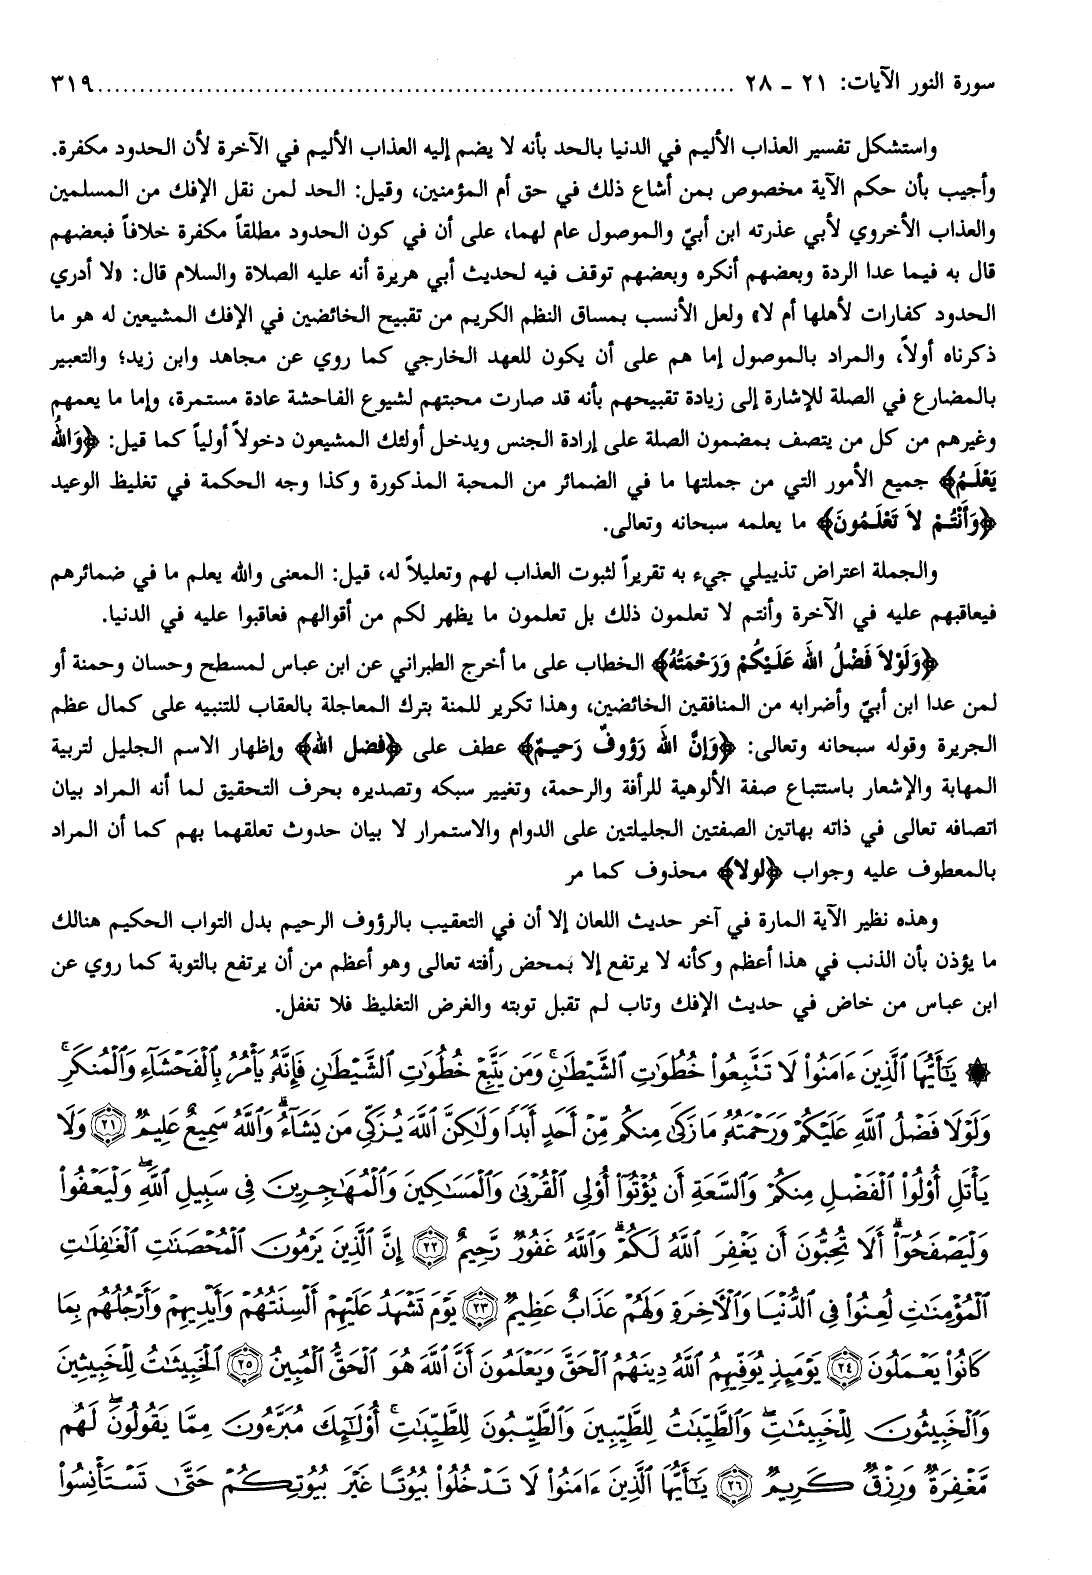 سورة النور الآيات: ٢١ ـ ٢٨ ........................................................................ ٣١٩
واستشكل تفسير العذاب الأليم في الدنيا بالحد بأنه لا يضم إليه العذاب الأليم في الآخرة لأن الحدود مكفرة.
وأجيب بأن حكم الآية مخصوص بمن أشاع ذلك في حق أم المؤمنين، وقيل: الحد لمن نقل الإفك من المسلمين
والعذاب الأخروي لأبي عذرته ابن أبيّ والموصول عام لهما، على أن في كون الحدود مطلقاً مكفرة خلافاً فبعضهم
قال به فيما عدا الردة وبعضهم أنكره وبعضهم توقف فيه لحديث أبي هريرة أنه عليه الصلاة والسلام قال: «لا أدري
الحدود كفارات لأهلها أم لا» ولعل الأنسب بمساق النظم الكريم من تقبيح الخائضين في الإفك المشيعين له هو ما
ذكرناه أولاً، والمراد بالموصول إما هم على أن يكون للعهد الخارجي كما روي عن مجاهد وابن زيد؛ والتعبير
بالمضارع في الصلة للإشارة إلى زيادة تقبيحهم بأنه قد صارت محبتهم لشيوع الفاحشة عادة مستمرة، وإما ما يعمهم
وغيرهم من كل من يتصف بمضمون الصلة على إرادة الجنس ويدخل أولئك المشيعون دخولاً أولياً كما قيل: ﴿وَاللهُ
يَعْلَمُ﴾ جميع الأمور التي من جملتها ما في الضمائر من المحبة المذكورة وكذا وجه الحكمة في تغليظ الوعيد
﴿وَأَنْتُمْ لاَ تَعْلَمُونَ﴾ ما يعلمه سبحانه وتعالى.
والجملة اعتراض تذييلي جيء به تقريراً لثبوت العذاب لهم وتعليلاً له، قيل: المعنى والله يعلم ما في ضمائرهم
فيعاقبهم عليه في الآخرة وأنتم لا تعلمون ذلك بل تعلمون ما يظهر لكم من أقوالهم فعاقبوا عليه في الدنيا.
﴿وَلَوْلاَ فَضْلُ اللهِ عَلَيْكُمْ وَرَحْمَتُهُ﴾ الخطاب على ما أخرج الطبراني عن ابن عباس لمسطح وحسان وحمنة أو
لمن عدا ابن أبيّ وأضرابه من المنافقين الخائضين، وهذا تكرير للمنة بترك المعاجلة بالعقاب للتنبيه على كمال عظم
الجريرة وقوله سبحانه وتعالى: ﴿وَإنَّ اللهَ رَؤوفٌ رَحيمٌ﴾ عطف على ﴿فضل الله﴾ وإظهار الاسم الجليل لتربية
المهابة والإشعار باستتباع صفة الألوهية للرأفة والرحمة، وتغيير سبكه وتصديره بحرف التحقيق لما أنه المراد بيان
اتصافه تعالى في ذاته بهاتين الصفتين الجليلتين على الدوام والاستمرار لا بيان حدوث تعلقهما بهم كما أن المراد
بالمعطوف عليه وجواب ﴿لولا﴾ محذوف كما مر
وهذه نظير الآية المارة في آخر حديث اللعان إلا أن في التعقيب بالرؤوف الرحيم بدل التواب الحكيم هنالك
ما يؤذن بأن الذنب في هذا أعظم وكأنه لا يرتفع إلا بمحض رأفته تعالى وهو أعظم من أن يرتفع بالتوبة كما روي عن
ابن عباس من خاض في حديث الإفك وتاب لم تقبل توبته والغرض التغليظ فلا تغفل.
۞ يَٰٓأَيُّهَا ٱلَّذِينَ ءَامَنُوا۟ لَا تَتَّبِعُوا۟ خُطُوَٰتِ ٱلشَّيْطَٰنِ ۚ وَمَن يَتَّبِعْ خُطُوَٰتِ ٱلشَّيْطَٰنِ فَإِنَّهُۥ يَأْمُرُ بِٱلْفَحْشَآءِ وَٱلْمُنكَرِ ۚ
وَلَوْلَا فَضْلُ ٱللَّهِ عَلَيْكُمْ وَرَحْمَتُهُۥ مَا زَكَىٰ مِنكُم مِّنْ أَحَدٍ أَبَدًا وَلَٰكِنَّ ٱللَّهَ يُزَكِّى مَن يَشَآءُ ۗ وَٱللَّهُ سَمِيعٌ عَلِيمٌ ﴿٢١﴾ وَلَا
يَأْتَلِ أُو۟لُوا۟ ٱلْفَضْلِ مِنكُمْ وَٱلسَّعَةِ أَن يُؤْتُوٓا۟ أُو۟لِى ٱلْقُرْبَىٰ وَٱلْمَسَٰكِينَ وَٱلْمُهَٰجِرِينَ فِى سَبِيلِ ٱللَّهِ ۖ وَلْيَعْفُوا۟
وَلْيَصْفَحُوٓا۟ ۗ أَلَا تُحِبُّونَ أَن يَغْفِرَ ٱللَّهُ لَكُمْ ۗ وَٱللَّهُ غَفُورٌ رَّحِيمٌ ﴿٢٢﴾ إِنَّ ٱلَّذِينَ يَرْمُونَ ٱلْمُحْصَنَٰتِ ٱلْغَٰفِلَٰتِ
ٱلْمُؤْمِنَٰتِ لُعِنُوا۟ فِى ٱلدُّنْيَا وَٱلْءَاخِرَةِ وَلَهُمْ عَذَابٌ عَظِيمٌ ﴿٢٣﴾ يَوْمَ تَشْهَدُ عَلَيْهِمْ أَلْسِنَتُهُمْ وَأَيْدِيهِمْ وَأَرْجُلُهُم بِمَا
كَانُوا۟ يَعْمَلُونَ ﴿٢٤﴾ يَوْمَئِذٍ يُوَفِّيهِمُ ٱللَّهُ دِينَهُمُ ٱلْحَقَّ وَيَعْلَمُونَ أَنَّ ٱللَّهَ هُوَ ٱلْحَقُّ ٱلْمُبِينُ ﴿٢٥﴾ ٱلْخَبِيثَٰتُ لِلْخَبِيثِينَ
وَٱلْخَبِيثُونَ لِلْخَبِيثَٰتِ ۖ وَٱلطَّيِّبَٰتُ لِلطَّيِّبِينَ وَٱلطَّيِّبُونَ لِلطَّيِّبَٰتِ ۚ أُو۟لَٰٓئِكَ مُبَرَّءُونَ مِمَّا يَقُولُونَ ۖ لَهُم
مَّغْفِرَةٌ وَرِزْقٌ كَرِيمٌ ﴿٢٦﴾ يَٰٓأَيُّهَا ٱلَّذِينَ ءَامَنُوا۟ لَا تَدْخُلُوا۟ بُيُوتًا غَيْرَ بُيُوتِكُمْ حَتَّىٰ تَسْتَأْنِسُوا۟